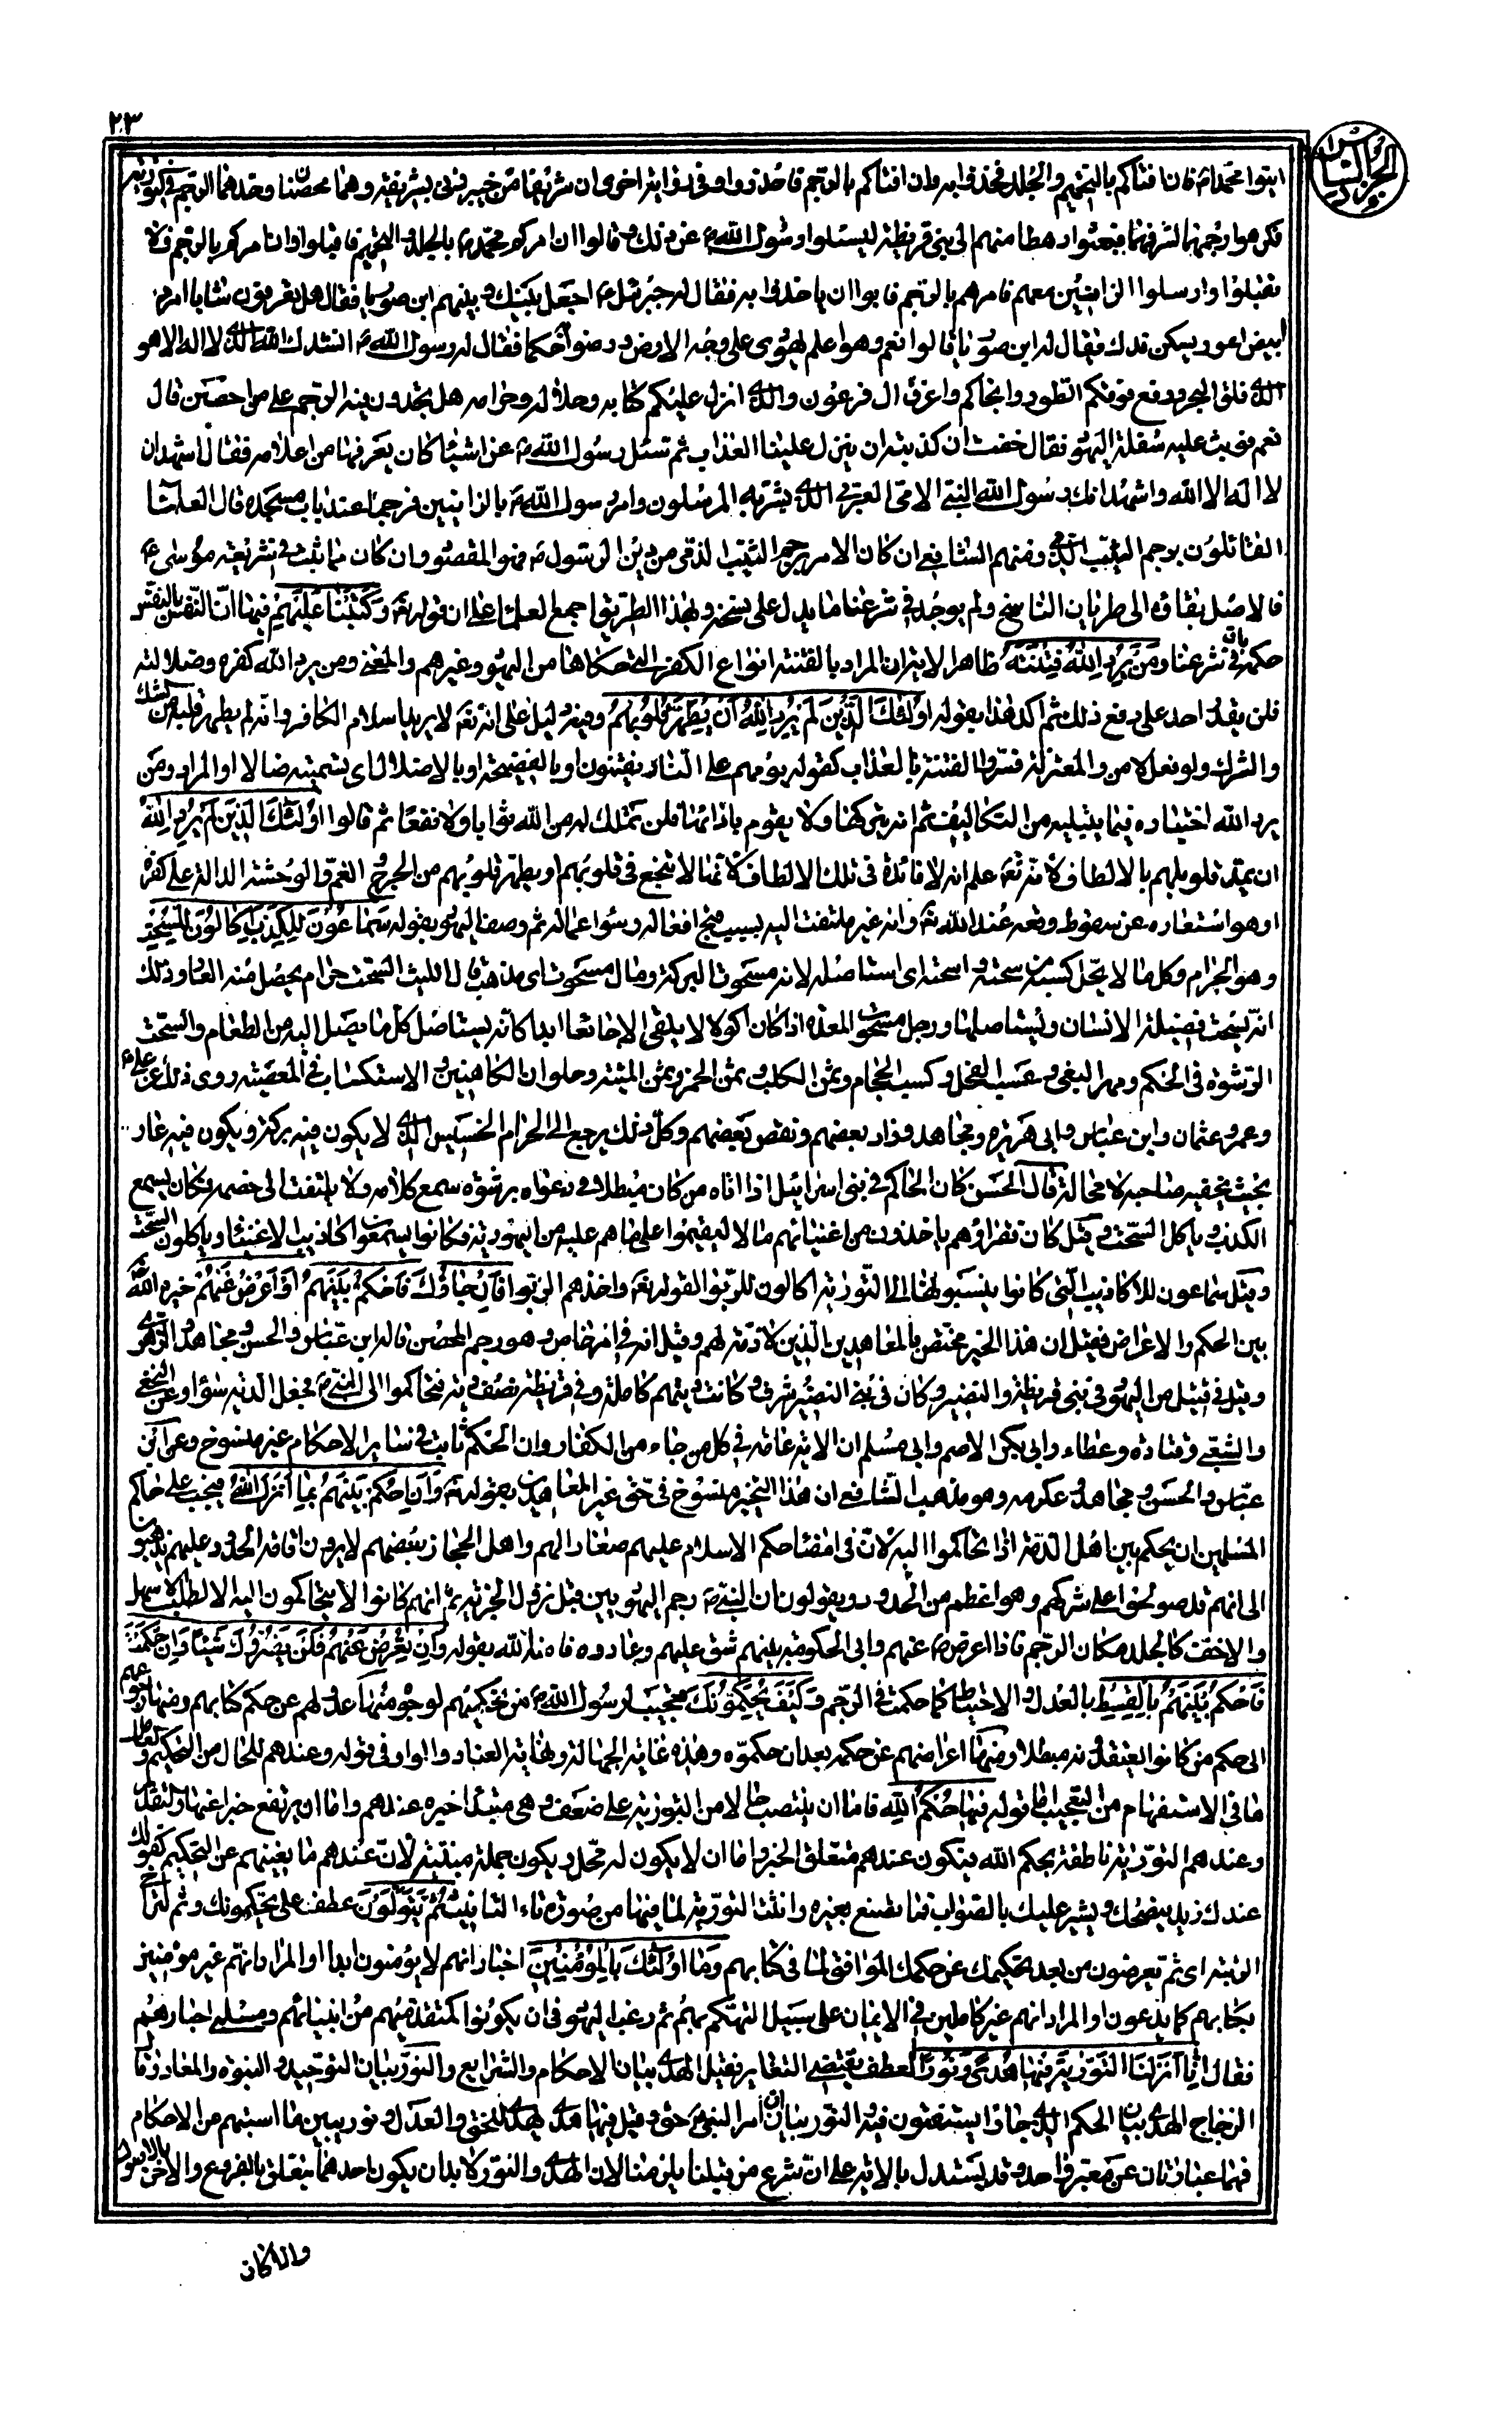 ٢٠٣
الجزء السادس
ايتوا محمدا ص فان افتاكم بالتحميم والجلد فخذوا به وان افتاكم بالرجم فاحذروا وفى رواية اخرى ان شريفا من خيبر زنى بشريفة وهما محصنان وحدهما الرجم فى التورية
فكرهوا رجمهما لشرفهما فبعثوا رهطا منهم الى بنى قريظة ليسئلوا رسول الله ص عن ذلك وقالوا ان امركم محمد ص بالجلد والتحميم فاقبلوا وان امركم بالرجم فلا
تقبلوا وارسلوا الزانيين معهم فامرهم بالرجم فابوا ان ياخذوا به فقال له جبرئيل ع اجعل بينك وبينهم ابن صوريا فقال هل تعرفون شابا امرد
ابيض اعور يسكن فدك يقال له ابن صوريا قالوا نعم وهو اعلم يهودى على وجه الارض ورضوا به حكما فقال له رسول الله ص انشدك الله الذى لا اله الا هو
الذى فلق البحر ورفع فوقكم الطور وانجاكم واغرق ال فرعون والذى انزل عليكم كتابه وحلاله وحرامه هل تجدون فيه الرجم على من احصن قال
نعم فوثب عليه سفلة اليهود فقال خفت ان كذبته ان ينزل علينا العذاب ثم سئل رسول الله ص عن اشياء كان يعرفها من اعلامه فقال اشهد ان
لا اله الا الله واشهد انك رسول الله النبى الامى العربى الذى بشر به المرسلون وامر رسول الله ص بالزانيين فرجما عند باب مسجده قال العلماء
القائلون برجم الثيب الذمى ومنهم الشافعى ان كان الامر برجم الثيب الذمى من دين الرسول ص فهو المقصود وان كان مما ثبت فى شريعة موسى ع
فالاصل بقاؤه الى طريان الناسخ ولم يوجد فى شرعنا ما يدل على نسخه وبهذا الطريق اجمع العلماء على ان قوله تعه وكتبنا عليهم فيها ان النفس بالنفس
حكمه باق فى شرعنا ومن يرد الله فتنته ظاهر الاية ان المراد بالفتنة انواع الكفر التى حكاها من اليهود وغيرهم والمعنى ومن يرد الله كفره وضلالته
فلن يقدر احد على دفع ذلك ثم اكد هذا بقوله اولئك الذين لم يرد الله ان يطهر قلوبهم وفيه دليل على انه تعه لا يريد اسلام الكافر وانه لم يطهر قلبه من الشك
والشرك ولو فعل لامن والمعتزلة فسروا الفتنة بالعذاب كقوله يوم هم على النار يفتنون او بالفضيحة او بالاضلال اى تسميته ضالا او المراد ومن
يرد الله اختباره فيما يبتليه من التكاليف ثم انه يتركها ولا يقوم بادائها فلن تملك له من الله ثوابا ولا نفعا ثم قالوا اولئك الذين لم يرد الله
ان يمد قلوبهم بالالطاف لانه تعه علم انه لا فائدة فى تلك الالطاف لانها لا تنجع فى قلوبهم او يطهر قلوبهم من الحرج والغم والوحشة الدالة على كفره
او هو استعارة عن سقوط وقعه عند الله تعه وانه غير ملتفت اليه بسبب قبح افعاله وسوء اعماله ثم وصف اليهود بقوله سماعون للكذب اكالون للسحت
وهو الحرام وكل ما لا يحل كسبه من سحته واسحته اى استاصله لانه مسحوت البركة ومال مسحوت اى مذهب قال الليث السحت حرام يحصل منه العار وذلك
انه يسحت فضيلة الانسان ويستاصلها ورجل مسحوت المعدة اذا كان اكولا لا يلقى الا جائعا ابدا كانه يستاصل كل ما يصل اليه من الطعام والسحت
الرشوة فى الحكم ومهر البغى وعسب الفحل وكسب الحجام وثمن الكلب وثمن الخمر وثمن الميتة وحلوان الكاهن والاستكساب فى المعصية روى ذلك عن على ع
وعمر وعثمان وابن عباس وابى هريرة ومجاهد وزاد بعضهم ونقص بعضهم وكل ذلك يرجع الى الحرام الخسيس الذى لا يكون فيه بركة ويكون فيه عار
بحيث يخفيه صاحبه لا محالة قال الحسن كان الحاكم فى بنى اسرائيل اذا اتاه من كان مبطلا فى دعواه برشوة سمع كلامه ولا يلتفت الى خصمه فكان يسمع
الكذب وياكل السحت وقيل كان فقراؤهم ياخذون من اغنيائهم مالا ليقيموا على ما هم عليه من اليهودية فكانوا يسمعون اكاذيب الاغنياء وياكلون السحت
وقيل سماعون للاكاذيب التى كانوا ينسبونها الى التورية اكالون للربوا لقوله تعه واخذهم الربوا فان جاؤك فاحكم بينهم او اعرض عنهم خيره الله
بين الحكم والاعراض فقيل ان هذا الخير مختص بالمعاهدين الذين لا ذمة لهم وقيل انه فى امر خاص وهو رجم المحصن قاله ابن عباس والحسن ومجاهد والزهرى
وقيل فى قتيل من اليهود فى بنى قريظة والنضير وكان فى بنى النضير شرف وكانت ديتهم كاملة وفى قريظة نصف دية فتحاكموا الى النبى ص فجعل الدية سواء وعن النخعى
والشعبى وقتادة وعطاء وابى بكر الاصم وابى مسلم ان الاية عامة فى كل من جاء من الكفار وان الحكم ثابت فى ساير الاحكام غير منسوخ وعن ابن
عباس والحسن ومجاهد وعكرمه وهو مذهب الشافعى ان هذا التخيير منسوخ فى حق غير المعاهدين بقوله تعه وان احكم بينهم بما انزل الله فيجب على حاكم
المسلمين ان يحكم بين اهل الذمة اذا تحاكموا اليه لان فى امضاء حكم الاسلام عليهم صغارا لهم واهل الحجاز بعضهم لا يرون اقامة الحدود عليهم يذهبون
الى انهم قد صولحوا على شركهم وهو اعظم من الحدود ويقولون ان النبى ص رجم اليهوديين قبل نزول الجزية ثم انهم كانوا لا يتحاكمون اليه الا لطلب الاسهل
والاخف كالجلد مكان الرجم فاذا اعرض ص عنهم وابى الحكومة بينهم شق عليهم وعادوه فامنه الله بقوله وان تعرض عنهم فلن يضروك شيئا وان حكمت
فاحكم بينهم بالقسط بالعدل والاحتياط كما حكمت فى الرجم وكيف يحكمونك تعجيب لرسول الله ص من تحكيمهم لوجوه منها عدولهم عن حكم كتابهم ومنها رجوعهم
الى حكم من كانوا يعتقدونه مبطلا ومنها اعراضهم عن حكمه بعد ان حكموه وهذه غاية الجهالة ونهاية العناد والواو فى قوله وعندهم للحال من التحكيم والعامل
ما فى الاستفهام من التعجيب اما قوله فيها حكم الله فاما ان ينتصب حالا من التورية على ضعف وهى مبتدا خبره عندهم واما ان يرتفع خبرا عنها والتقدير
وعندهم التورية ناطقة بحكم الله فيكون عندهم متعلق الخبر واما ان لا يكون له محل ويكون جملة مبتدئة لان عندهم ما يغنيهم عن التحكيم كقولك
عندك زيد ينصحك ويشير عليك بالصواب فما تصنع بغيره وانثت التورية لما فيها من صورة تاء التانيث ثم يتولون عطف على يحكمونك وثم لتراخى
الرتبة اى ثم يعرضون من بعد تحكيمك عن حكمك الموافق لما فى كتابهم وما اولئك بالمؤمنين اخبار انهم لا يؤمنون ابدا او المراد انهم غير مؤمنين
بكتابهم كما يدعون او المراد انهم غير كاملين فى الايمان على سبيل التهكم بهم ثم رغب اليهود فى ان يكونوا كمتقدميهم من انبيائهم ومسلمى احبارهم
فقال انا انزلنا التورية فيها هدى ونور العطف يقتضى التغاير فقيل الهدى بيان الاحكام والشرايع والنور بيان التوحيد والنبوة والمعاد وقال
الزجاج الهدى بيان الحكم الذى جاؤا يستفتون فيه والنور بيان ان امر النبى ص حق وقيل فيها هدى يهدى للحق والعدل ونور يبين ما استبهم من الاحكام
فهما عبارتان عن معبر واحد وقد يستدل بالاية على ان شرع من قبلنا يلزمنا لان الهدى والنور لا بد ان يكون احدهما يتعلق بالفروع والاخر بالاصول
والا كان